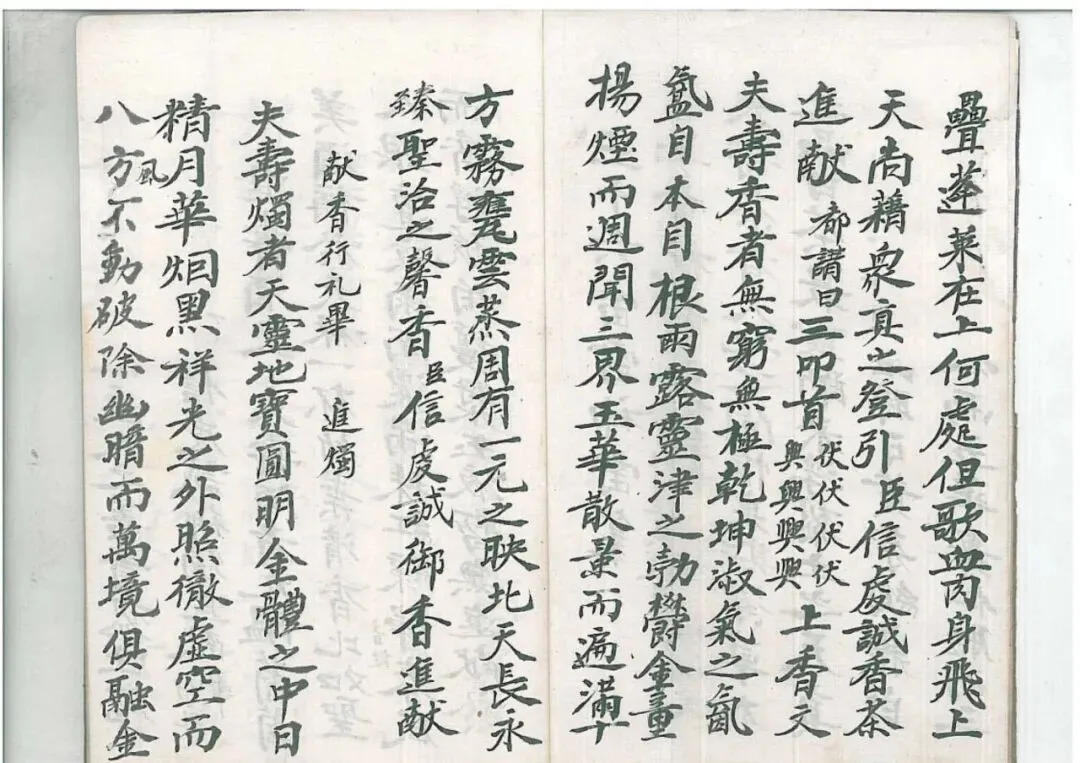 疊蓬萊在上何處但歌血肉身飛上
天尚藉衆真之登引臣信虔誠香茶
進献 都講曰三叩首 伏伏伏伏 興興興興 上香文
夫壽香者無窮無極乾坤淑氣之氤
氳自本目根雨露靈津之勃欝金童
揚煙而週聞三界玉華散景而遍滿十
方霧甕雲蒸周有一元之映北天長永
臻聖治之馨香臣信虔誠御香進献
献香行礼畢 進燭
夫壽燭者天靈地寶圓明金體之中日
精月華烟黑祥光之外照徹虛空而
八方風不動破除幽暗而萬境俱融金